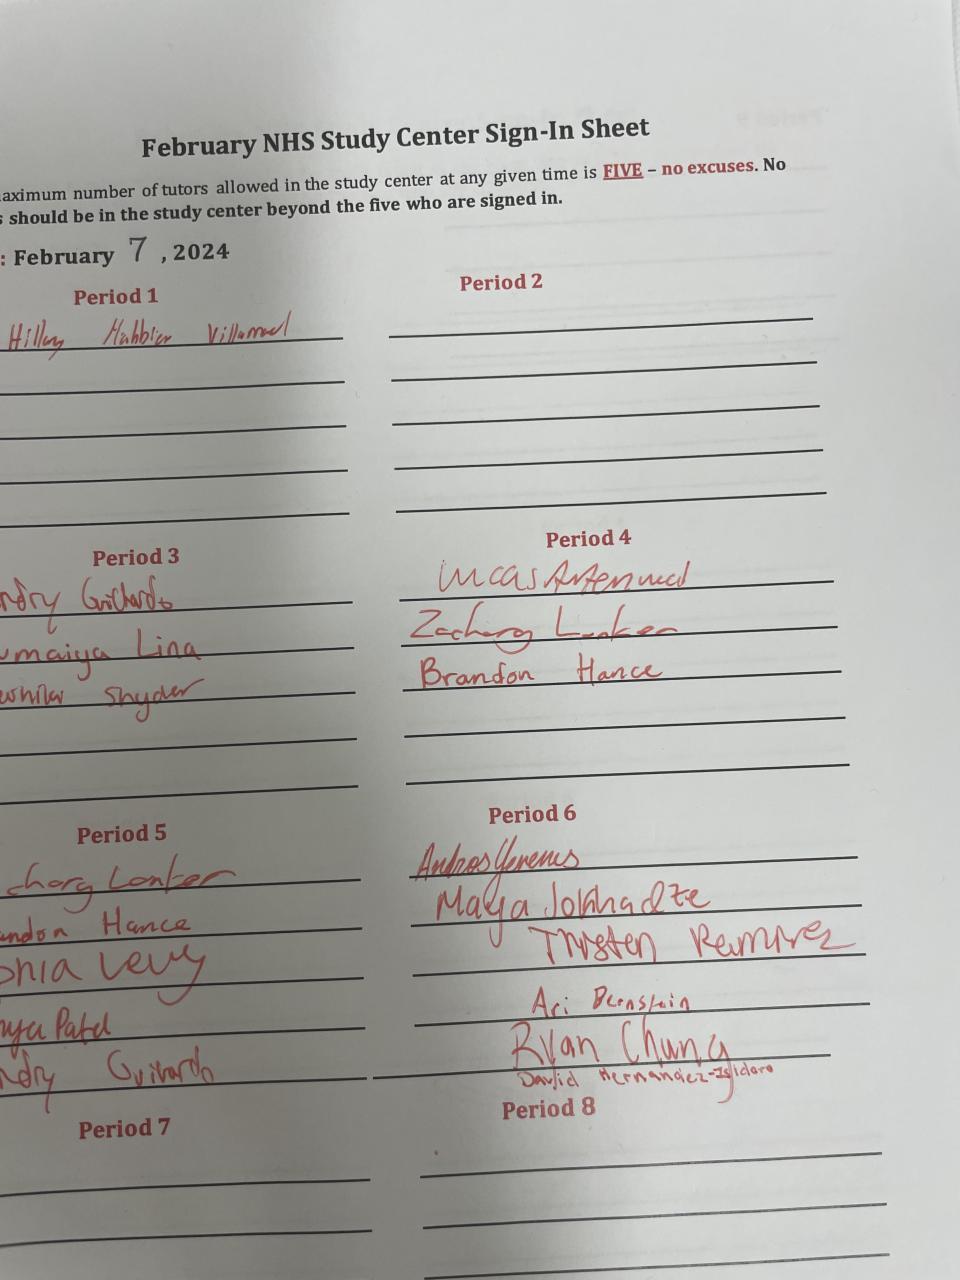 February NHS Study Center Sign-In Sheet
maximum number of tutors allowed in the study center at any given time is FIVE – no excuses. No
s should be in the study center beyond the five who are signed in.
: February 7, 2024
Period 1
Period 2
Villarreal
Period 3
Period 4
ndry
Zachary
umaiya Lina
Brandon Hance
Snyder
Period 5
Period 6
chary Lonker
Andros
ndon Hance
Maya Jokhadze
onia Levy
Ramirez
nya Patel
Ari Bernstein
ndry
Ryan Chung
David Hernandez-Isidoro
Period 7
Period 8